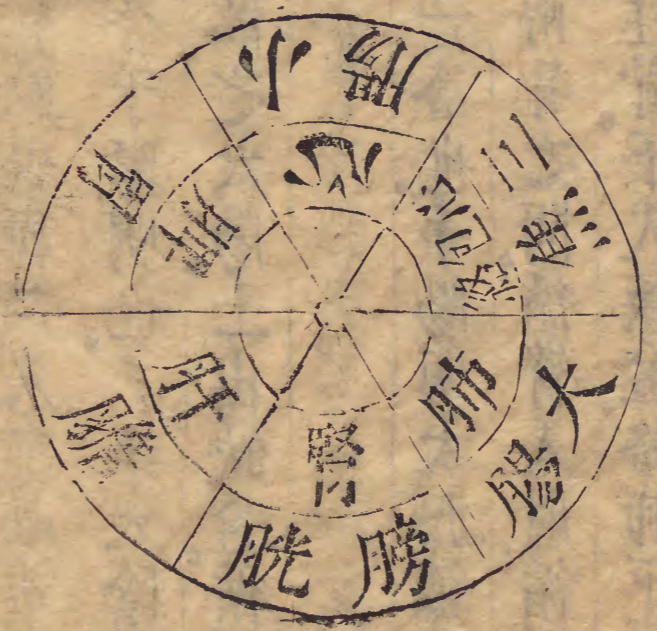 小腸
心
三焦
心包絡
大腸
肺
膀胱
腎
膽
肝
胃
脾